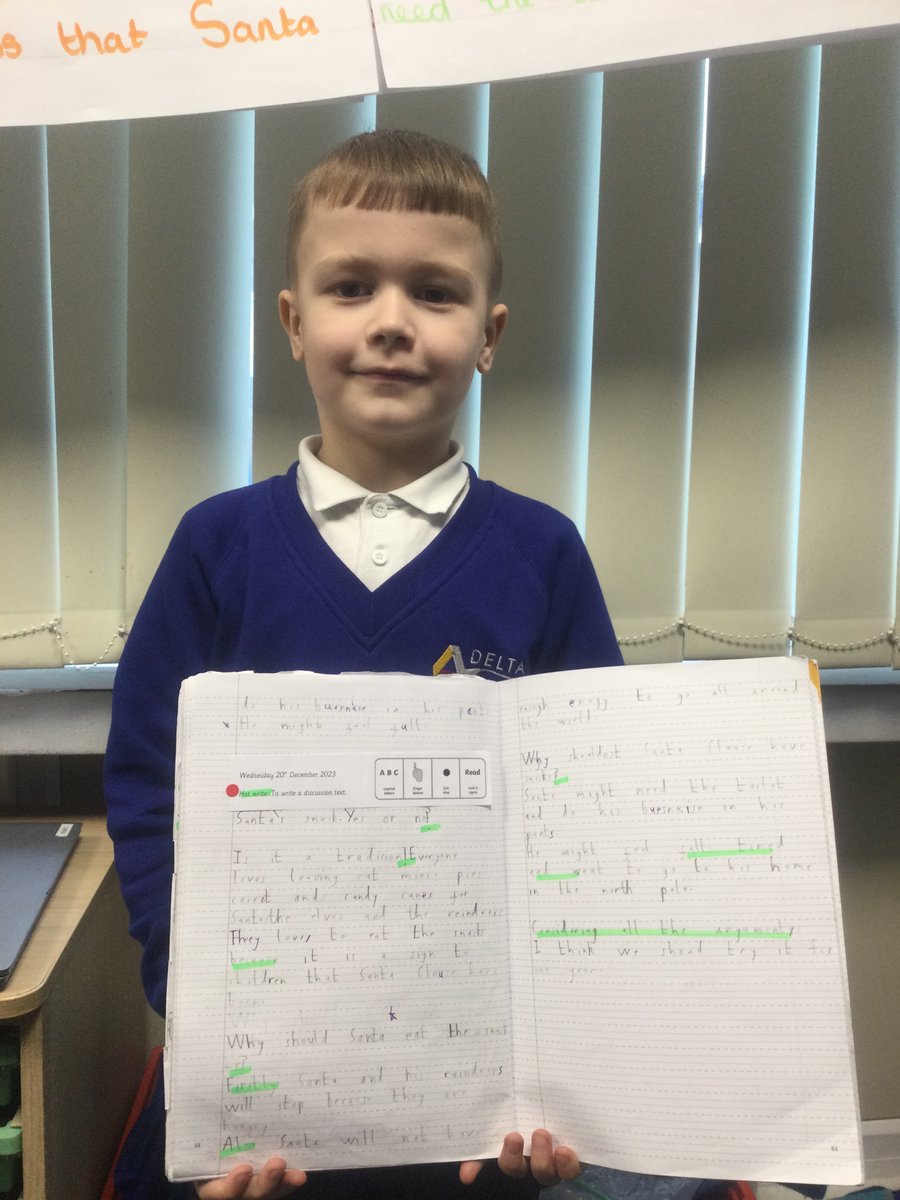 s that Santa
need the
DELTA
do his buesnaise in his pant
* He might feel full
Wednesday 20th December 2023
Hot write: To write a discussion text.
A B C
capital letters
finger spaces
full stop
Read
read it again
Santa's snack-Yes or no?
Is it a tradicional Everyone
loves leaving out mince pies
carrot and candy canes for
Santa the elves and the reindeers
They loves to eat the snack
because it is a sign to
children that Santa Clause have
been.
Why should Santa eat the snack
s?
Firstly Santa and his reindeers
will stop because they are
hungry
Also Santa will not have
52
enough enagy to go all around
the world
Why shouldnt Santa Clause have
snaks?
Santa might need the toilit
and do his buesnaise in his
pants.
He might feel full, tired
and want to go to his home
in the north pole.
Considering all the arguments
I think we shoud try it for
one year.
53